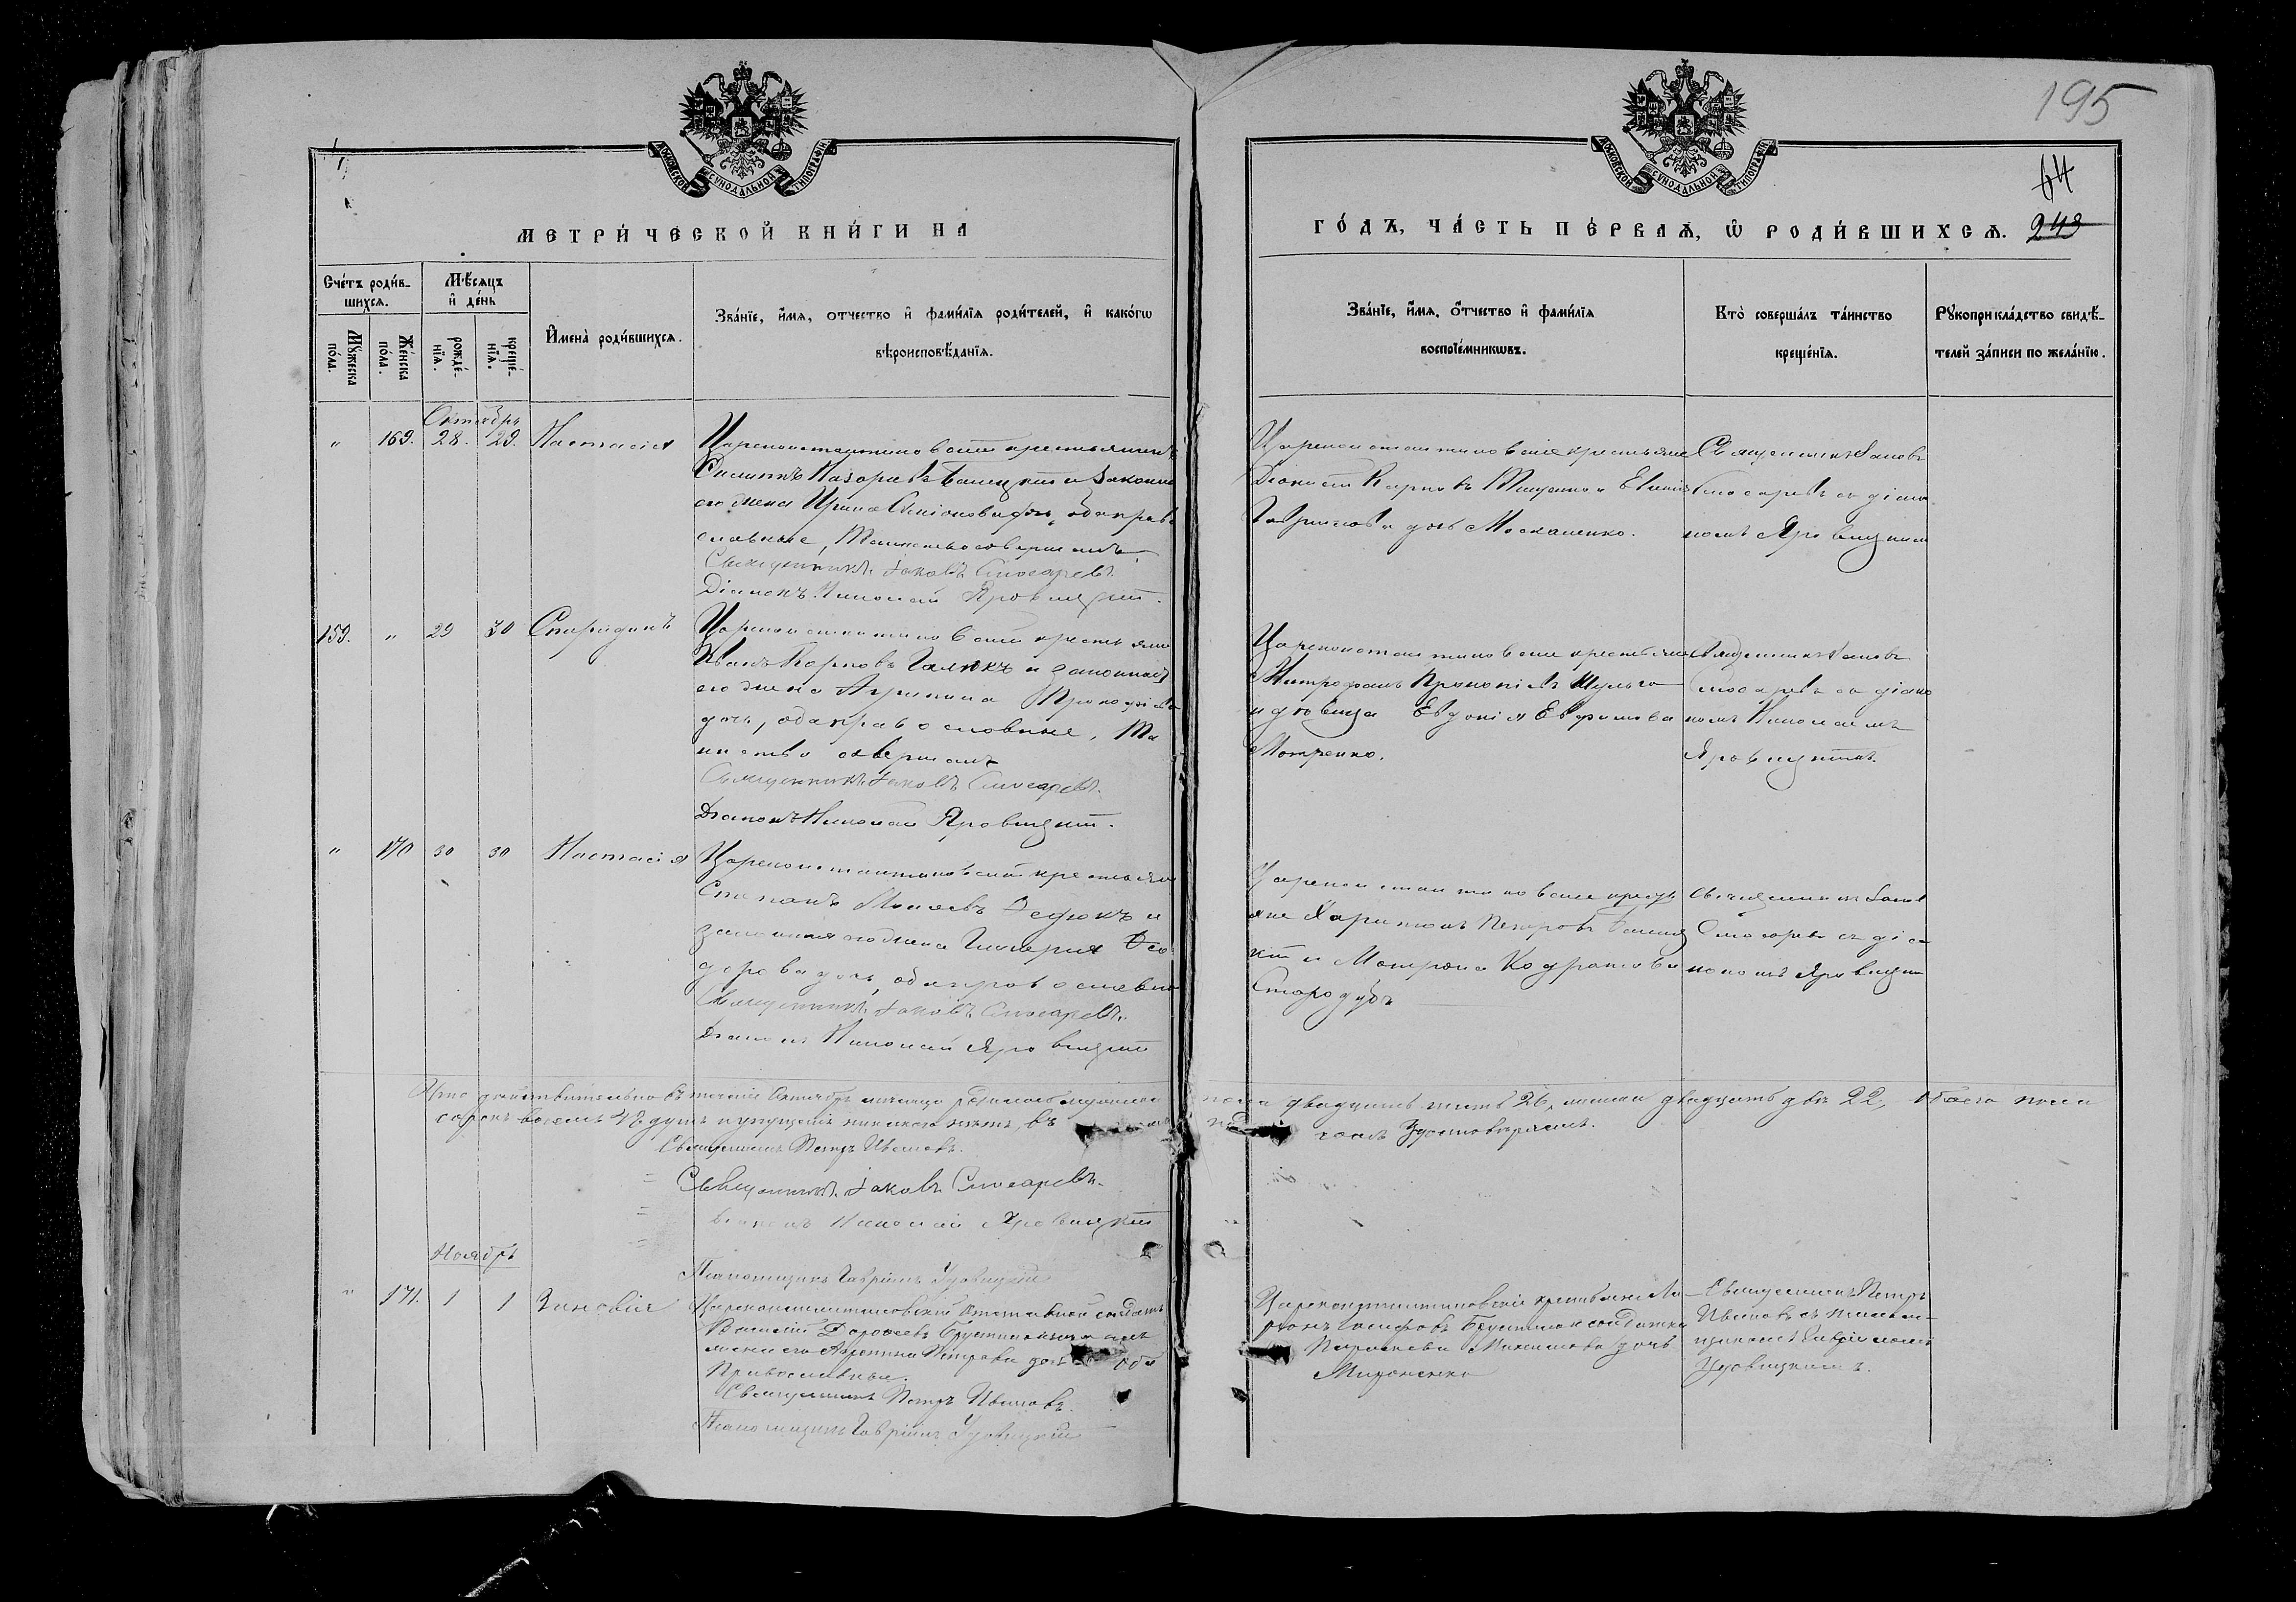 195
64
248
МОСКОВСКОЙ СУНОДАЛЬНОЙ ТИПОГРАФІИ
МОСКОВСКОЙ СУНОДАЛЬНОЙ ТИПОГРАФІИ
МЕТРИ́ЧЕСКОЙ КНИ́ГИ НА
ГО́ДЪ, ЧА́СТЬ ПЕ́РВАѦ, Ѡ РОДИ́ВШИХСѦ.
Сче́тъ роди́в-
шихсѧ.
Мꙋ́жеска
по́ла.
Же́нска
по́ла.
Мѣ́сѧцъ
и҆ де́нь
рожде́-
нїѧ.
креще́-
нїѧ.
И҆мена̀ роди́вшихсѧ.
Зва́нїе, и҆́мѧ, отчество и҆ фами́лїѧ роди́телей, и҆ како́гѡ
вѣроисповѣ́данїѧ.
Зва́нїе, и҆́мѧ, ѻ҆́тчество и҆ фами́лїѧ
воспрїе́мникѡвъ.
Кто̀ соверша́лъ та́инство
креще́нїѧ.
Рꙋкоприкла́дство свидѣ́-
телей за́писи по жела́нїю.
Октябрь
" 169. 28. 29. Настасія
Цареконстантиновскій крестьянинъ
Назаревъ и законная
его жена Ирина дочь, оба право
славные, Таинство совершалъ
Священникъ Іаковъ Слюсаревъ.
Діаконъ Николай Яровицкій.
Цареконстантиновскіе крестьяне
Карповъ Тищенко и
дочь Москаленко.
Священникъ Іаковъ
Слюсаревъ съ діако
номъ Яровицкимъ
159. " 29 30 Спиридонъ
Цареконстантиновскій крестьянин
Иванъ Карповъ и законная
его жена Агрипина Прокофіева
дочь, оба православные, Та
инство совершалъ
Священникъ Іаковъ Слюсаревъ.
Діаконъ Николай Яровицкій.
Цареконстантиновскіе крестьяне
Митрофанъ Прокопіевъ Шульга
и дѣвица Евдокія Евфимова
Мотренко.
Священникъ Іаковъ
Слюсаревъ съ діако
номъ Николаемъ
Яровицкимъ.
" 170 30 30 Настасія
Цареконстантиновскій крестьянин
Степанъ Моисеевъ и
законная его жена Гликерия Ѳео
дорова дочь, оба православные
Священникъ Іаковъ Слюсаревъ.
Діаконъ Николай Яровицкій
Цареконстантиновские кресть
яне Харитонъ Петровъ
и Матрона Кодратова
Стародубъ
Священникъ Іаков
Слюсаревъ съ діа
кономъ Яровицким
Что действительно въ теченіи Октября месяца родилось мужеска пола двадцать шесть 26, женска двадцать два 22, обоего пола
сорокъ восемь 48 душъ и упущенія никакого нетъ, въ
Священникъ Петръ Ивановъ.
Священникъ Іаковъ Слюсаревъ.
Діаконъ Николай Яровицкій
Псаломщикъ Гавріилъ Удовицкій
Ноябрь
" 171. 1 1 Зиновія
Цареконстантиновскій отставной солдатъ
Василій Дороѳеевъ
жена его Агрепина Петрова дочь оба
Православные.
Священникъ Петръ Ивановъ.
Псаломщикъ Гавріилъ Удовицкій
Цареконстантиновскіе крестьяне
Іосифовъ солдатка
дочь
Мироненко
Священникъ Петръ
Ивановъ съ псалом-
щикомъ Гавріиломъ
Удовицкимъ.